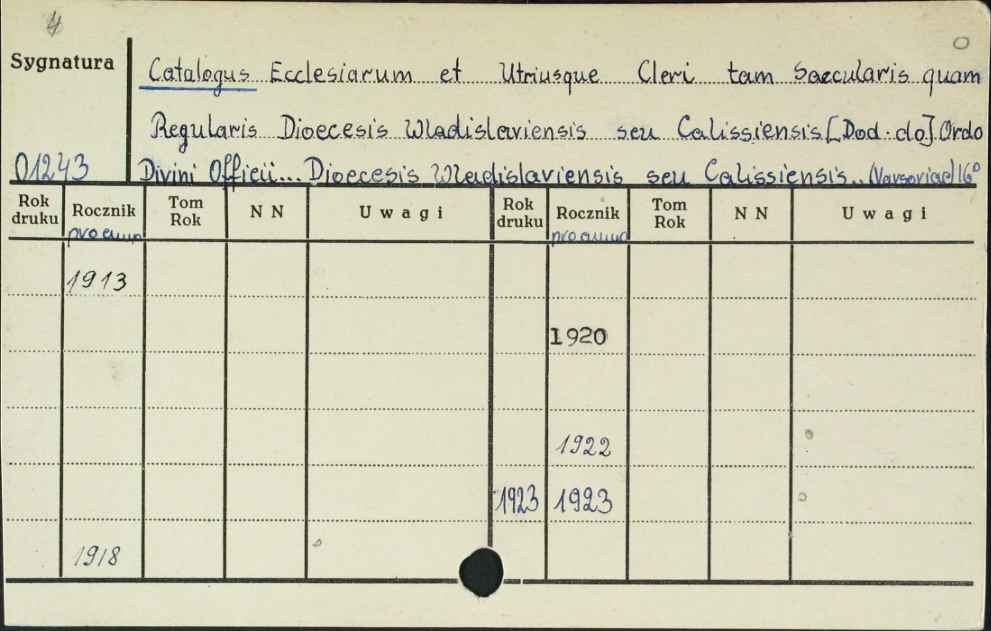 4
Sygnatura
Catalogus Ecclesiarum et Utriusque Cleri tam Saecularis quam
Regularis Dioecesis Wladislaviensis seu Calissiensis [Dod. do] Ordo
01243
Divini Officii... Dioecesis Wladislaviensis seu Calissiensis.. (Varsoviae) 16°
Rok druku Rocznik Tom Rok N N Uwagi Rok druku Rocznik Tom Rok N N Uwagi
pro anno pro anno
1913
1920
1922
1923 1923
1918